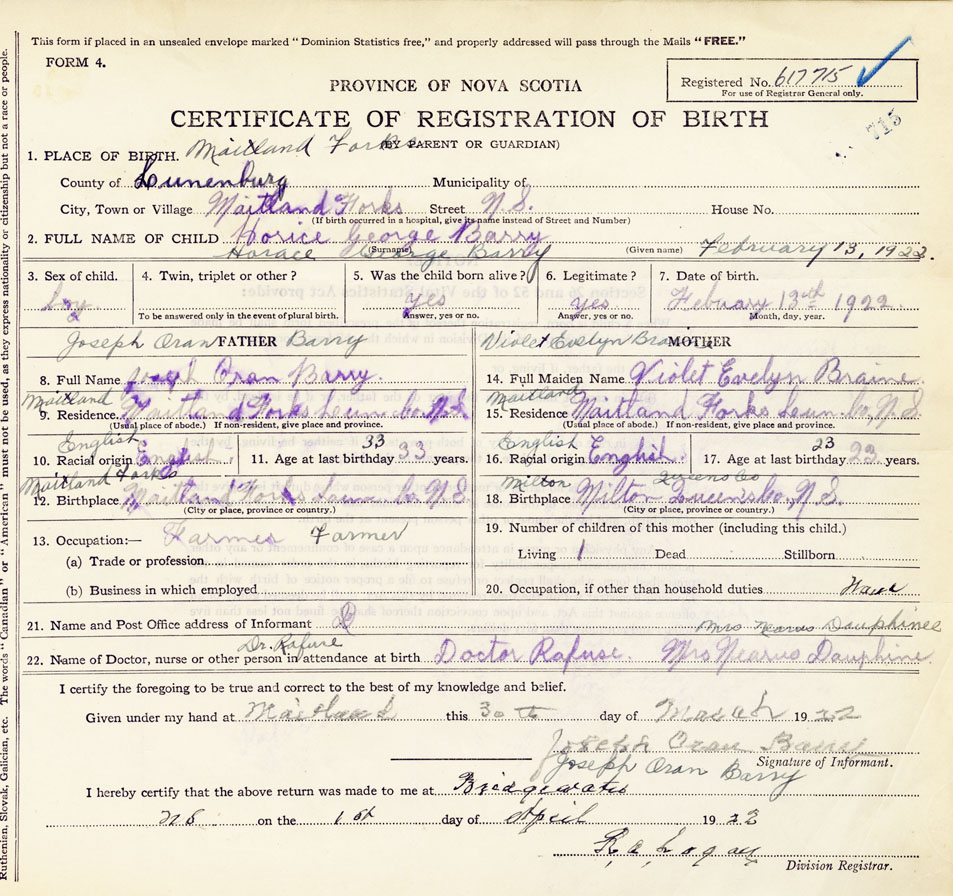 This form if placed in an unsealed envelope marked "Dominion Statistics free," and properly addressed will pass through the Mails "FREE."
FORM 4.
Registered No. 617715
For use of Registrar General only.
PROVINCE OF NOVA SCOTIA
CERTIFICATE OF REGISTRATION OF BIRTH
715
(BY PARENT OR GUARDIAN)
1. PLACE OF BIRTH. Maitland Forks
County of Lunenburg Municipality of
City, Town or Village Maitland Forks Street N.S. House No.
(If birth occurred in a hospital, give its name instead of Street and Number)
2. FULL NAME OF CHILD Horice George Barry
(Surname) (Given name)
Horace George Barry February 13, 1922.
3. Sex of child. 4. Twin, triplet or other? 5. Was the child born alive? 6. Legitimate? 7. Date of birth.
boy Yes Yes Febuary 13th 1922
To be answered only in the event of plural birth. Answer, yes or no. Answer, yes or no. Month, day, year.
Joseph Oran Barry FATHER
8. Full Name Joseph Oran Barry.
Maitland
9. Residence. Maitland Forks Lun. Co. N.S.
(Usual place of abode.) If non-resident, give place and province.
English 33
10. Racial origin English 11. Age at last birthday 33 years.
Maitland Forks
12. Birthplace Maitland Forks Lun. Co. N.S.
(City or place, province or country.)
13. Occupation:— Farmer Farmer
(a) Trade or profession
(b) Business in which employed
Violet Evelyn Braine MOTHER
14. Full Maiden Name Violet Evelyn Braine
Maitland
15. Residence Maitland Forks Lun. Co, N.S
(Usual place of abode.) If non-resident, give place and province.
English 23
16. Racial origin English. 17. Age at last birthday 23 years.
Milton Queens Co
18. Birthplace Milton Queens Co, N.S.
(City or place, province or country.)
19. Number of children of this mother (including this child.)
Living 1 Dead Stillborn
20. Occupation, if other than household duties
21. Name and Post Office address of Informant Mrs Dauphinee
Dr. Rafuse
22. Name of Doctor, nurse or other person in attendance at birth Doctor Rafuse. Mrs Dauphine.
I certify the foregoing to be true and correct to the best of my knowledge and belief.
Given under my hand at Maitland this 30th day of March 1922
Joseph Oran Barry
Signature of Informant.
Joseph Oran Barry
I hereby certify that the above return was made to me at Bridgewater
NS on the 1st day of April 1922
Division Registrar.
Ruthenian, Slovak, Galician, etc. The words "Canadian" or "American" must not be used, as they express nationality or citizenship but not a race or people.